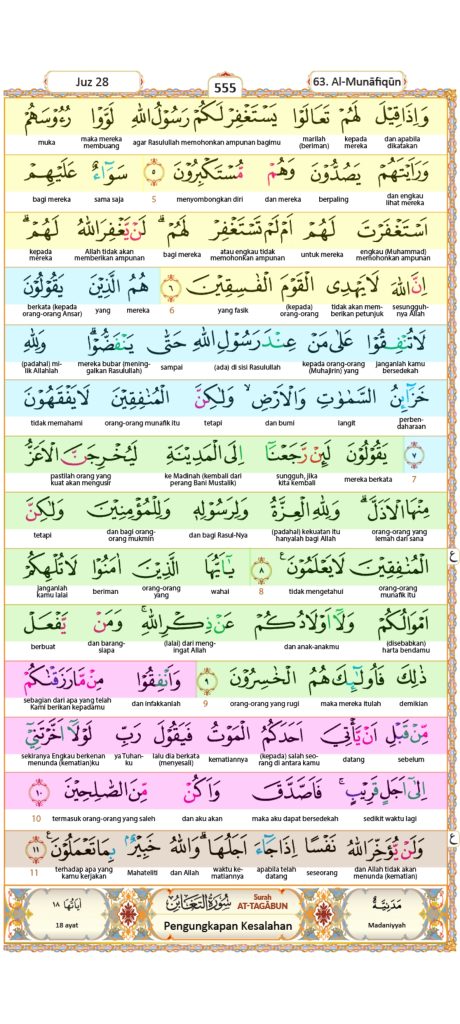 Juz 28
555
63. Al-Munāfiqūn
وَاِذَا قِيْلَ لَهُمْ تَعَالَوْا يَسْتَغْفِرْ لَكُمْ رَسُوْلُ اللّٰهِ لَوَّوْا رُءُوْسَهُمْ
dan apabila dikatakan kepada mereka marilah (beriman) agar Rasulullah memohonkan ampunan bagimu maka mereka membuang muka
وَرَاَيْتَهُمْ يَصُدُّوْنَ وَهُمْ مُّسْتَكْبِرُوْنَ ۝٥ سَوَاۤءٌ عَلَيْهِمْ
dan engkau lihat mereka berpaling dan mereka menyombongkan diri 5 sama saja bagi mereka
اَسْتَغْفَرْتَ لَهُمْ اَمْ لَمْ تَسْتَغْفِرْ لَهُمْۗ لَنْ يَّغْفِرَ اللّٰهُ لَهُمْۗ
engkau (Muhammad) memohonkan ampunan untuk mereka atau engkau tidak memohonkan ampunan bagi mereka Allah tidak akan memberikan ampunan kepada mereka
اِنَّ اللّٰهَ لَا يَهْدِى الْقَوْمَ الْفٰسِقِيْنَ ۝٦ هُمُ الَّذِيْنَ يَقُوْلُوْنَ
sesungguh-nya Allah tidak akan mem-berikan petunjuk (kepada) orang-orang yang fasik 6 mereka yang berkata (kepada orang-orang Ansar)
لَا تُنْفِقُوْا عَلٰى مَنْ عِنْدَ رَسُوْلِ اللّٰهِ حَتّٰى يَنْفَضُّوْاۗ وَلِلّٰهِ
janganlah kamu bersedekah kepada orang-orang (Muhajirin) yang (ada) di sisi Rasulullah sampai mereka bubar (mening-galkan Rasulullah) (padahal) mi-lik Allahlah
خَزَاۤىِٕنُ السَّمٰوٰتِ وَالْاَرْضِۙ وَلٰكِنَّ الْمُنٰفِقِيْنَ لَا يَفْقَهُوْنَ
perben-daharaan langit dan bumi tetapi orang-orang munafik itu tidak memahami
۝٧ يَقُوْلُوْنَ لَىِٕنْ رَّجَعْنَآ اِلَى الْمَدِيْنَةِ لَيُخْرِجَنَّ الْاَعَزُّ
7 mereka berkata sungguh, jika kita kembali ke Madinah (kembali dari perang Bani Mustalik) pastilah orang yang kuat akan mengusir
مِنْهَا الْاَذَلَّۗ وَلِلّٰهِ الْعِزَّةُ وَلِرَسُوْلِهٖ وَلِلْمُؤْمِنِيْنَ وَلٰكِنَّ
orang-orang yang lemah dari sana (padahal) kekuatan itu hanyalah bagi Allah dan bagi Rasul-Nya dan bagi orang-orang mukmin tetapi
الْمُنٰفِقِيْنَ لَا يَعْلَمُوْنَ ۝٨ ع يٰٓاَيُّهَا الَّذِيْنَ اٰمَنُوْا لَا تُلْهِكُمْ
orang-orang munafik itu tidak mengetahui 8 wahai orang-orang yang beriman janganlah kamu lalai
اَمْوَالُكُمْ وَلَآ اَوْلَادُكُمْ عَنْ ذِكْرِ اللّٰهِۚ وَمَنْ يَّفْعَلْ
(disebabkan) harta bendamu dan anak-anakmu (lalai) dari meng-ingat Allah dan barang-siapa berbuat
ذٰلِكَ فَاُولٰۤىِٕكَ هُمُ الْخٰسِرُوْنَ ۝٩ وَاَنْفِقُوْا مِنْ مَّا رَزَقْنٰكُمْ
demikian maka mereka itulah orang-orang yang rugi 9 dan infakkanlah sebagian dari apa yang telah Kami berikan kepadamu
مِّنْ قَبْلِ اَنْ يَّأْتِيَ اَحَدَكُمُ الْمَوْتُ فَيَقُوْلَ رَبِّ لَوْلَآ اَخَّرْتَنِيْٓ
sebelum datang (kepada) salah seo-rang di antara kamu kematiannya lalu dia berkata (menyesali) ya Tuhan-ku sekiranya Engkau berkenan menunda (kematian)ku
اِلٰٓى اَجَلٍ قَرِيْبٍۚ فَاَصَّدَّقَ وَاَكُنْ مِّنَ الصّٰلِحِيْنَ ۝١٠
sedikit waktu lagi maka aku dapat bersedekah dan aku akan termasuk orang-orang yang saleh 10
وَلَنْ يُّؤَخِّرَ اللّٰهُ نَفْسًا اِذَا جَاۤءَ اَجَلُهَاۗ وَاللّٰهُ خَبِيْرٌۢ بِمَا تَعْمَلُوْنَ ۝١١ ع
dan Allah tidak akan menunda (kematian) seseorang apabila telah datang waktu ke-matiannya dan Allah Mahateliti terhadap apa yang kamu kerjakan 11
مَدَنِيَّةٌ
Madaniyyah
سُوْرَةُ التَّغَابُنِ
Surah AT-TAGĀBUN
Pengungkapan Kesalahan
اٰيَاتُهَا ١٨
18 ayat